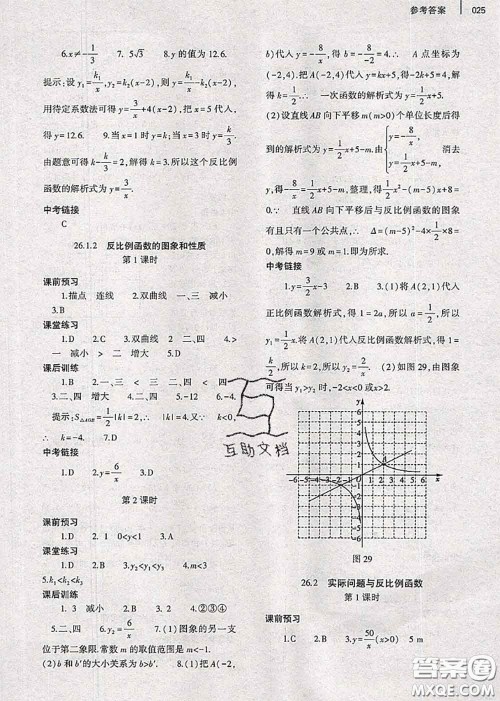 参考答案 025
6.x≠-1/3 7. 5√3 8.y 的值为 12.6.
提示:设 y₁=k₁/x,y₂=k₂(x-2),则 y=k₁/x-k₂(x-2),
用待定系数法可得 y=3/x+4(x-2),把 x=5 代人,
得 y=12.6. 9.当 x=1 时 y=k;当 x=3 时 y=k/3.
由题意可得 k-k/3=2,解得 k=3.所以这个反比例
函数的解析式为 y=3/x.
中考链接
C
26.1.2 反比例函数的图象和性质
第 1 课时
课前预习
1.描点 连线 2.双曲线 一、三 减小
3.B
课堂练习
1.D 2.C 3.双曲线 二、四 4.>
一 减小 > 二 增大 5.D
课后训练
1.B 2.一、三 < 三 四 < 四
3.二、四 增大 4.二、四 < > 5.D 6.D
提示:S△AOB=1/2|k|=2,∴ |k|=4.又∵ k<0,
∴ k=-4. 7.D
中考链接
1.D 2.y=6/x
第 2 课时
课前预习
1.D 2. 1 0<y<1 3.B
课堂练习
1.D 3.C 4.m<3
5.k₁<k₃<k₂
课后训练
1.D 3. 减小 2.D 4.②③④
5.二、四 6.y=6/x 7.(1)图象的另一支
位于第二象限.常数 m 的取值范围是 m<-1.
(2)b 和 b′的大小关系为 b>b′. 8.(1)把 A(-2,
b)代入 y=-8/x,得 b=-8/-2=4.∴ A 点坐标为
(-2,4).把 A(-2,4)代入 y=kx+5,得-2k+5=4,解
得 k=1/2.∴ 一次函数的解析式为 y=1/2x+5.
(2)设直线 AB 向下平移 m(m>0)个单位长度后得
到的解析式为 y=1/2x+5-m.由{y=-8/x, y=1/2x+5-m, 消去
y,得-8/x=1/2x+5-m,整理,得1/2x²-(m-5)x+8=
0.∵ 直线 AB 向下平移后与反比例函数的图象
有且只有一个公共点,∴ Δ=(m-5)²-4×1/2×8=
0,解得 m=9 或 m=1.即为所求.
中考链接
1.y=3/2x-3 2.B 3.(1)将 A(2,1)代入
正比例函数解析式,得 1=2a,所以 a=1/2,所以
y₁=1/2x.将 A(2,1)代入反比例函数解析式,得 1
=k/2,所以 k=2,所以 y₂=2/x. (2)如图 29,由图象
可得当 y₁>y₂ 时,-2<x<0 或 x>2.
互助文档
y
6
5
4
3
2
1
A
-6 -5 -4 -3 -2 -1 0 1 2 3 4 5 6 x
-1
-2
-3
-4
-5
-6
图 29
26.2 实际问题与反比例函数
第 1 课时
课前预习
1.C 2.B 3.y=50/x(x>0) 5 m
答案圈
MXQE.COM